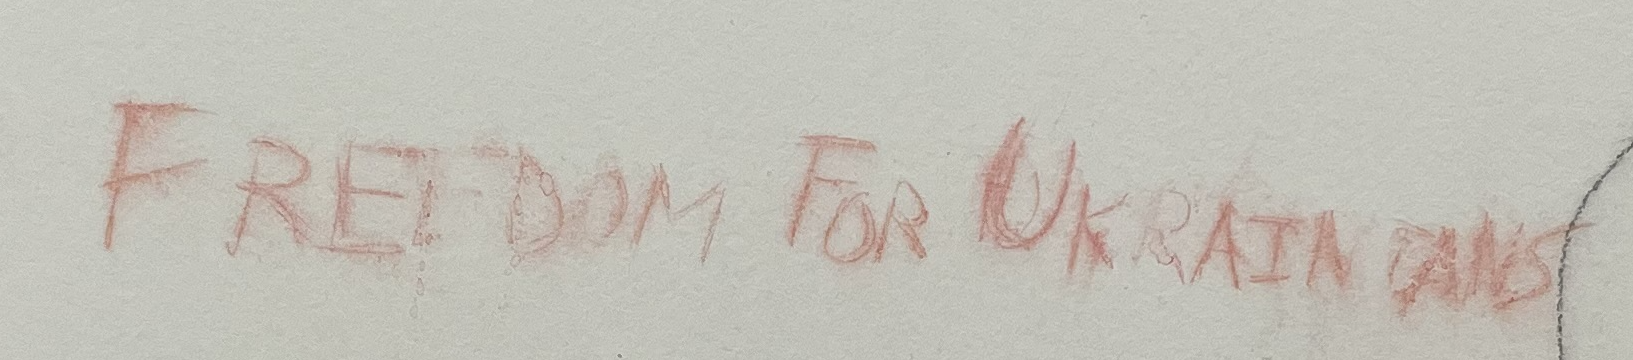 FREEDOM FOR UKRAINIANS